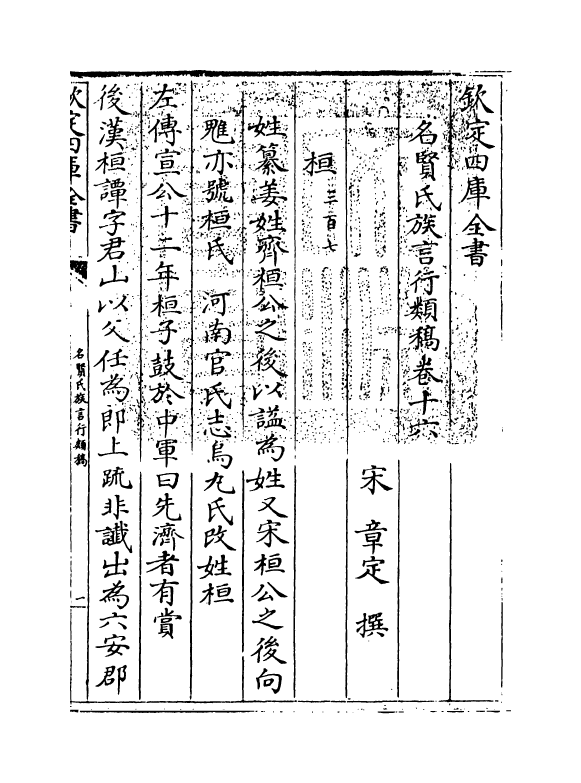 欽定四庫全書
名賢氏族言行類稿卷十六
宋 章定 撰
桓 三百七
姓纂姜姓齊桓公之後以謚為姓又宋桓公之後向
魋亦號桓氏 河南官氏志烏丸氏改姓桓
左傳宣公十二年桓子鼓於中軍曰先濟者有賞
後漢桓譚字君山以父任為郎上疏非讖出為六安郡
欽定四庫全書
名賢氏族言行類稿
一